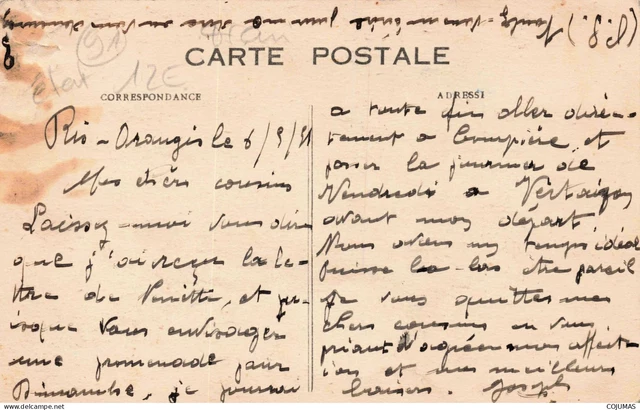 (P.S.) Voulez-vous m'écrire pour me dire
(91)
État
12E
CARTE POSTALE
CORRESPONDANCE
ADRESSE
Ris-Orangis le 6/9/31
Mes chers cousins
Laissez-moi vous dire
que j'ai reçu la le-
ttre de Ninette, et pu-
isque vous envisagez
une promenade pour
Dimanche, je pourrai
a toute fin aller direc-
tement a Courpière et
passer la journée de
Vendredi a Vertaizon
avant mon départ
Nous avons un temps idéal
Puisse la-bas être pareil
Je vous quitte mes
chers cousins en vous
priant d'agréer mes affect-
ions et mes meilleurs
baisers. Joseph
COJUMAS